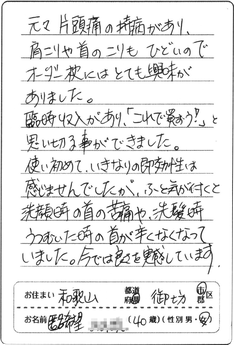 元々片頭痛の持病があり、
肩こりや首のこりもひどいので
オーダー枕にはとても興味が
ありました。
臨時収入があり、「これで買おう!」と
思い切る事ができました。
使い初めて、いきなりの即効性は
感じませんでしたが、ふと気が付くと
洗顔時の首の苦痛や、洗髪時
うつむいた時の首が辛くなくなって
いました。今では良さを実感しています。
お住まい 和歌山 都道府県 御坊 市区郡
お名前 匿名希望 (40歳)(性別 男・女)